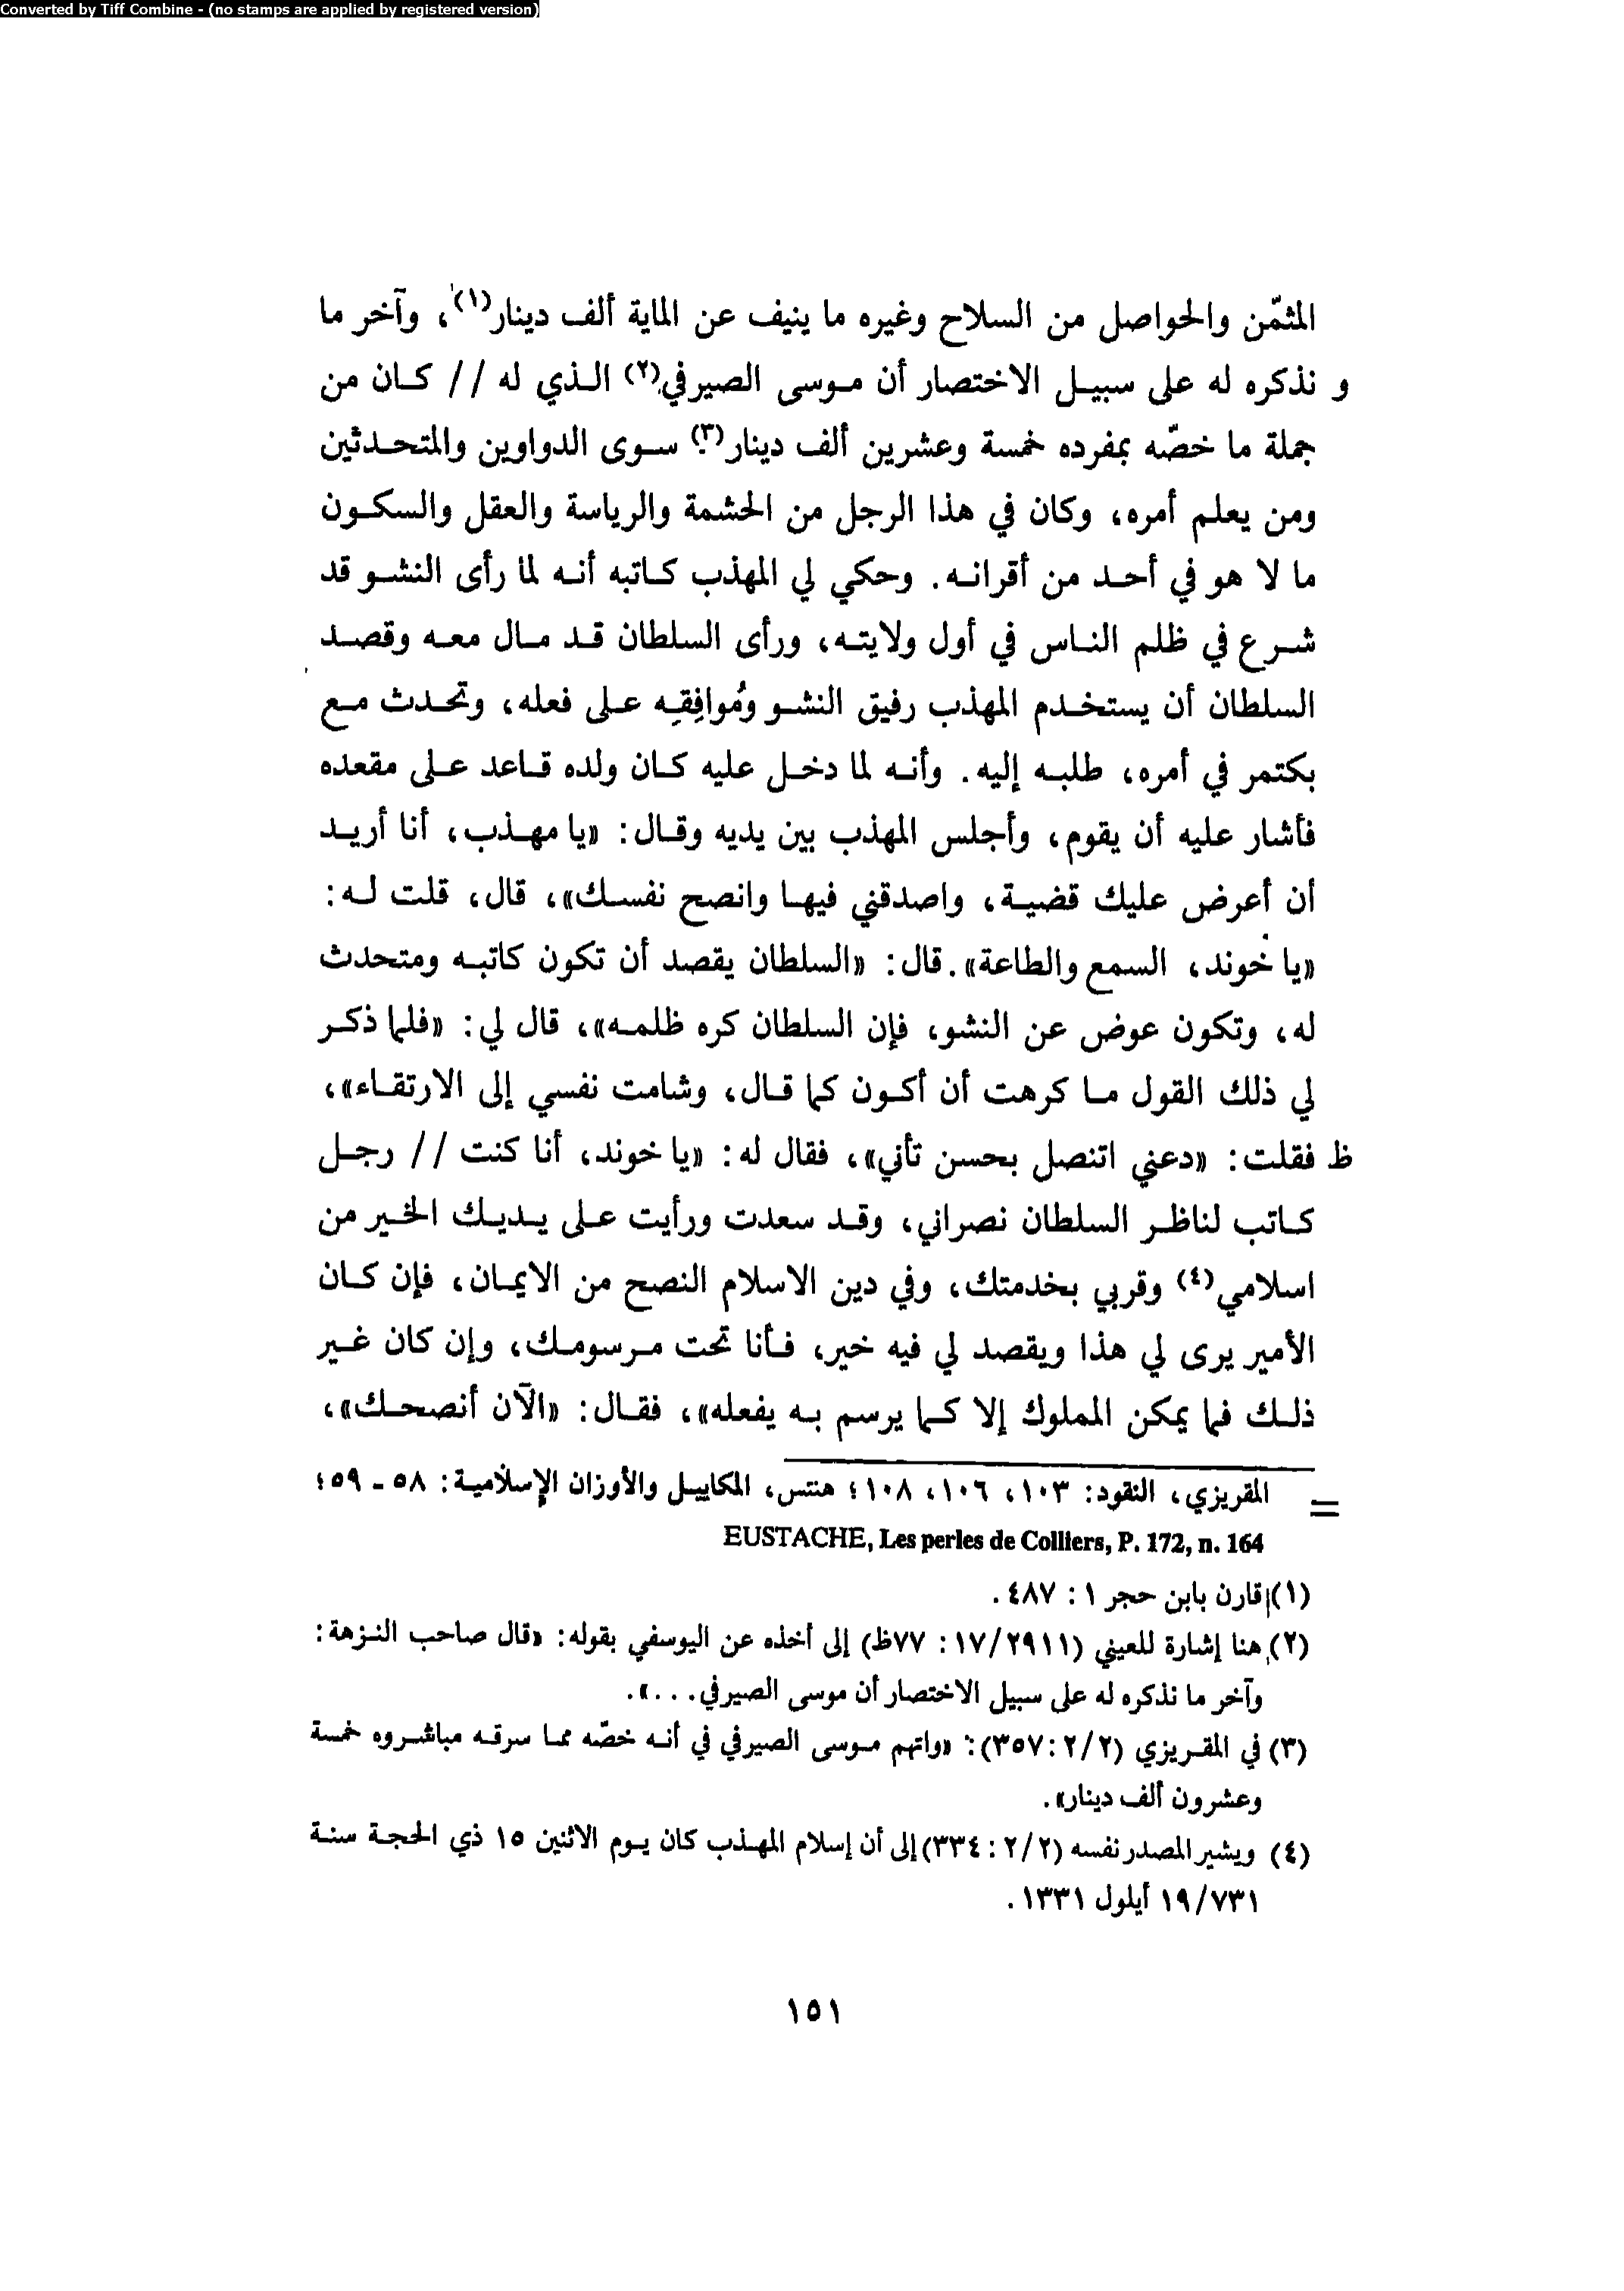 Converted by Tiff Combine - (no stamps are applied by registered version)
المثمّن والحواصل من السلاح وغيره ما ينيف عن الماية ألف دينار(١)، وآخر ما
و نذكره له على سبيل الاختصار أن موسى الصيرفي(٢) الذي له // كان من
جملة ما خصّه بمفرده خمسة وعشرين ألف دينار(٣) سوى الدواوين والمتحدثين
ومن يعلم أمره، وكان في هذا الرجل من الحشمة والرياسة والعقل والسكون
ما لا هو في أحد من أقرانه. وحكي لي المهذب كاتبه أنه لما رأى النشو قد
شرع في ظلم الناس في أول ولايته، ورأى السلطان قد مال معه وقصد
السلطان أن يستخدم المهذب رفيق النشو ومُوافِقِه على فعله، وتحدث مع
بكتمر في أمره، طلبه إليه. وأنه لما دخل عليه كان ولده قاعد على مقعده
فأشار عليه أن يقوم، وأجلس المهذب بين يديه وقال: «يا مهذب، أنا أريد
أن أعرض عليك قضية، واصدقني فيها وانصح نفسك»، قال، قلت له:
«يا خوند، السمع والطاعة». قال: «السلطان يقصد أن تكون كاتبه ومتحدث
له، وتكون عوض عن النشو، فإن السلطان كره ظلمه»، قال لي: «فلما ذكر
لي ذلك القول ما كرهت أن أكون كما قال، وشامت نفسي إلى الارتقاء»،
ظ فقلت: «دعني اتنصل بحسن تأني»، فقال له: «يا خوند، أنا كنت // رجل
كاتب لناظر السلطان نصراني، وقد سعدت ورأيت على يديك الخير من
اسلامي(٤) وقربي بخدمتك، وفي دين الاسلام النصح من الايمان، فإن كان
الأمير يرى لي هذا ويقصد لي فيه خير، فأنا تحت مرسومك، وإن كان غير
ذلك فما يمكن المملوك إلا كما يرسم به يفعله»، فقال: «الآن أنصحك»،
= المقريزي، النقود: ١٠٣، ١٠٦، ١٠٨؛ هنتس، المكاييل والأوزان الإسلامية: ٥٨ - ٥٩؛
EUSTACHE, Les perles de Colliers, P. 172, n. 164
(١) قارن بابن حجر ١: ٤٨٧.
(٢) هنا إشارة للعيني (١٧/٢٩١١: ٧٧ظ) إلى أخذه عن اليوسفي بقوله: «قال صاحب النزهة:
وآخر ما نذكره له على سبيل الاختصار أن موسى الصيرفي...».
(٣) في المقريزي (٢/٢: ٣٥٧): «واتهم موسى الصيرفي في أنه خصّه مما سرقه مباشروه خمسة
وعشرون ألف دينار».
(٤) ويشير المصدر نفسه (٢/٢: ٣٣٤) إلى أن إسلام المهذب كان يوم الاثنين ١٥ ذي الحجة سنة
١٩/٧٣١ أيلول ١٣٣١.
١٥١